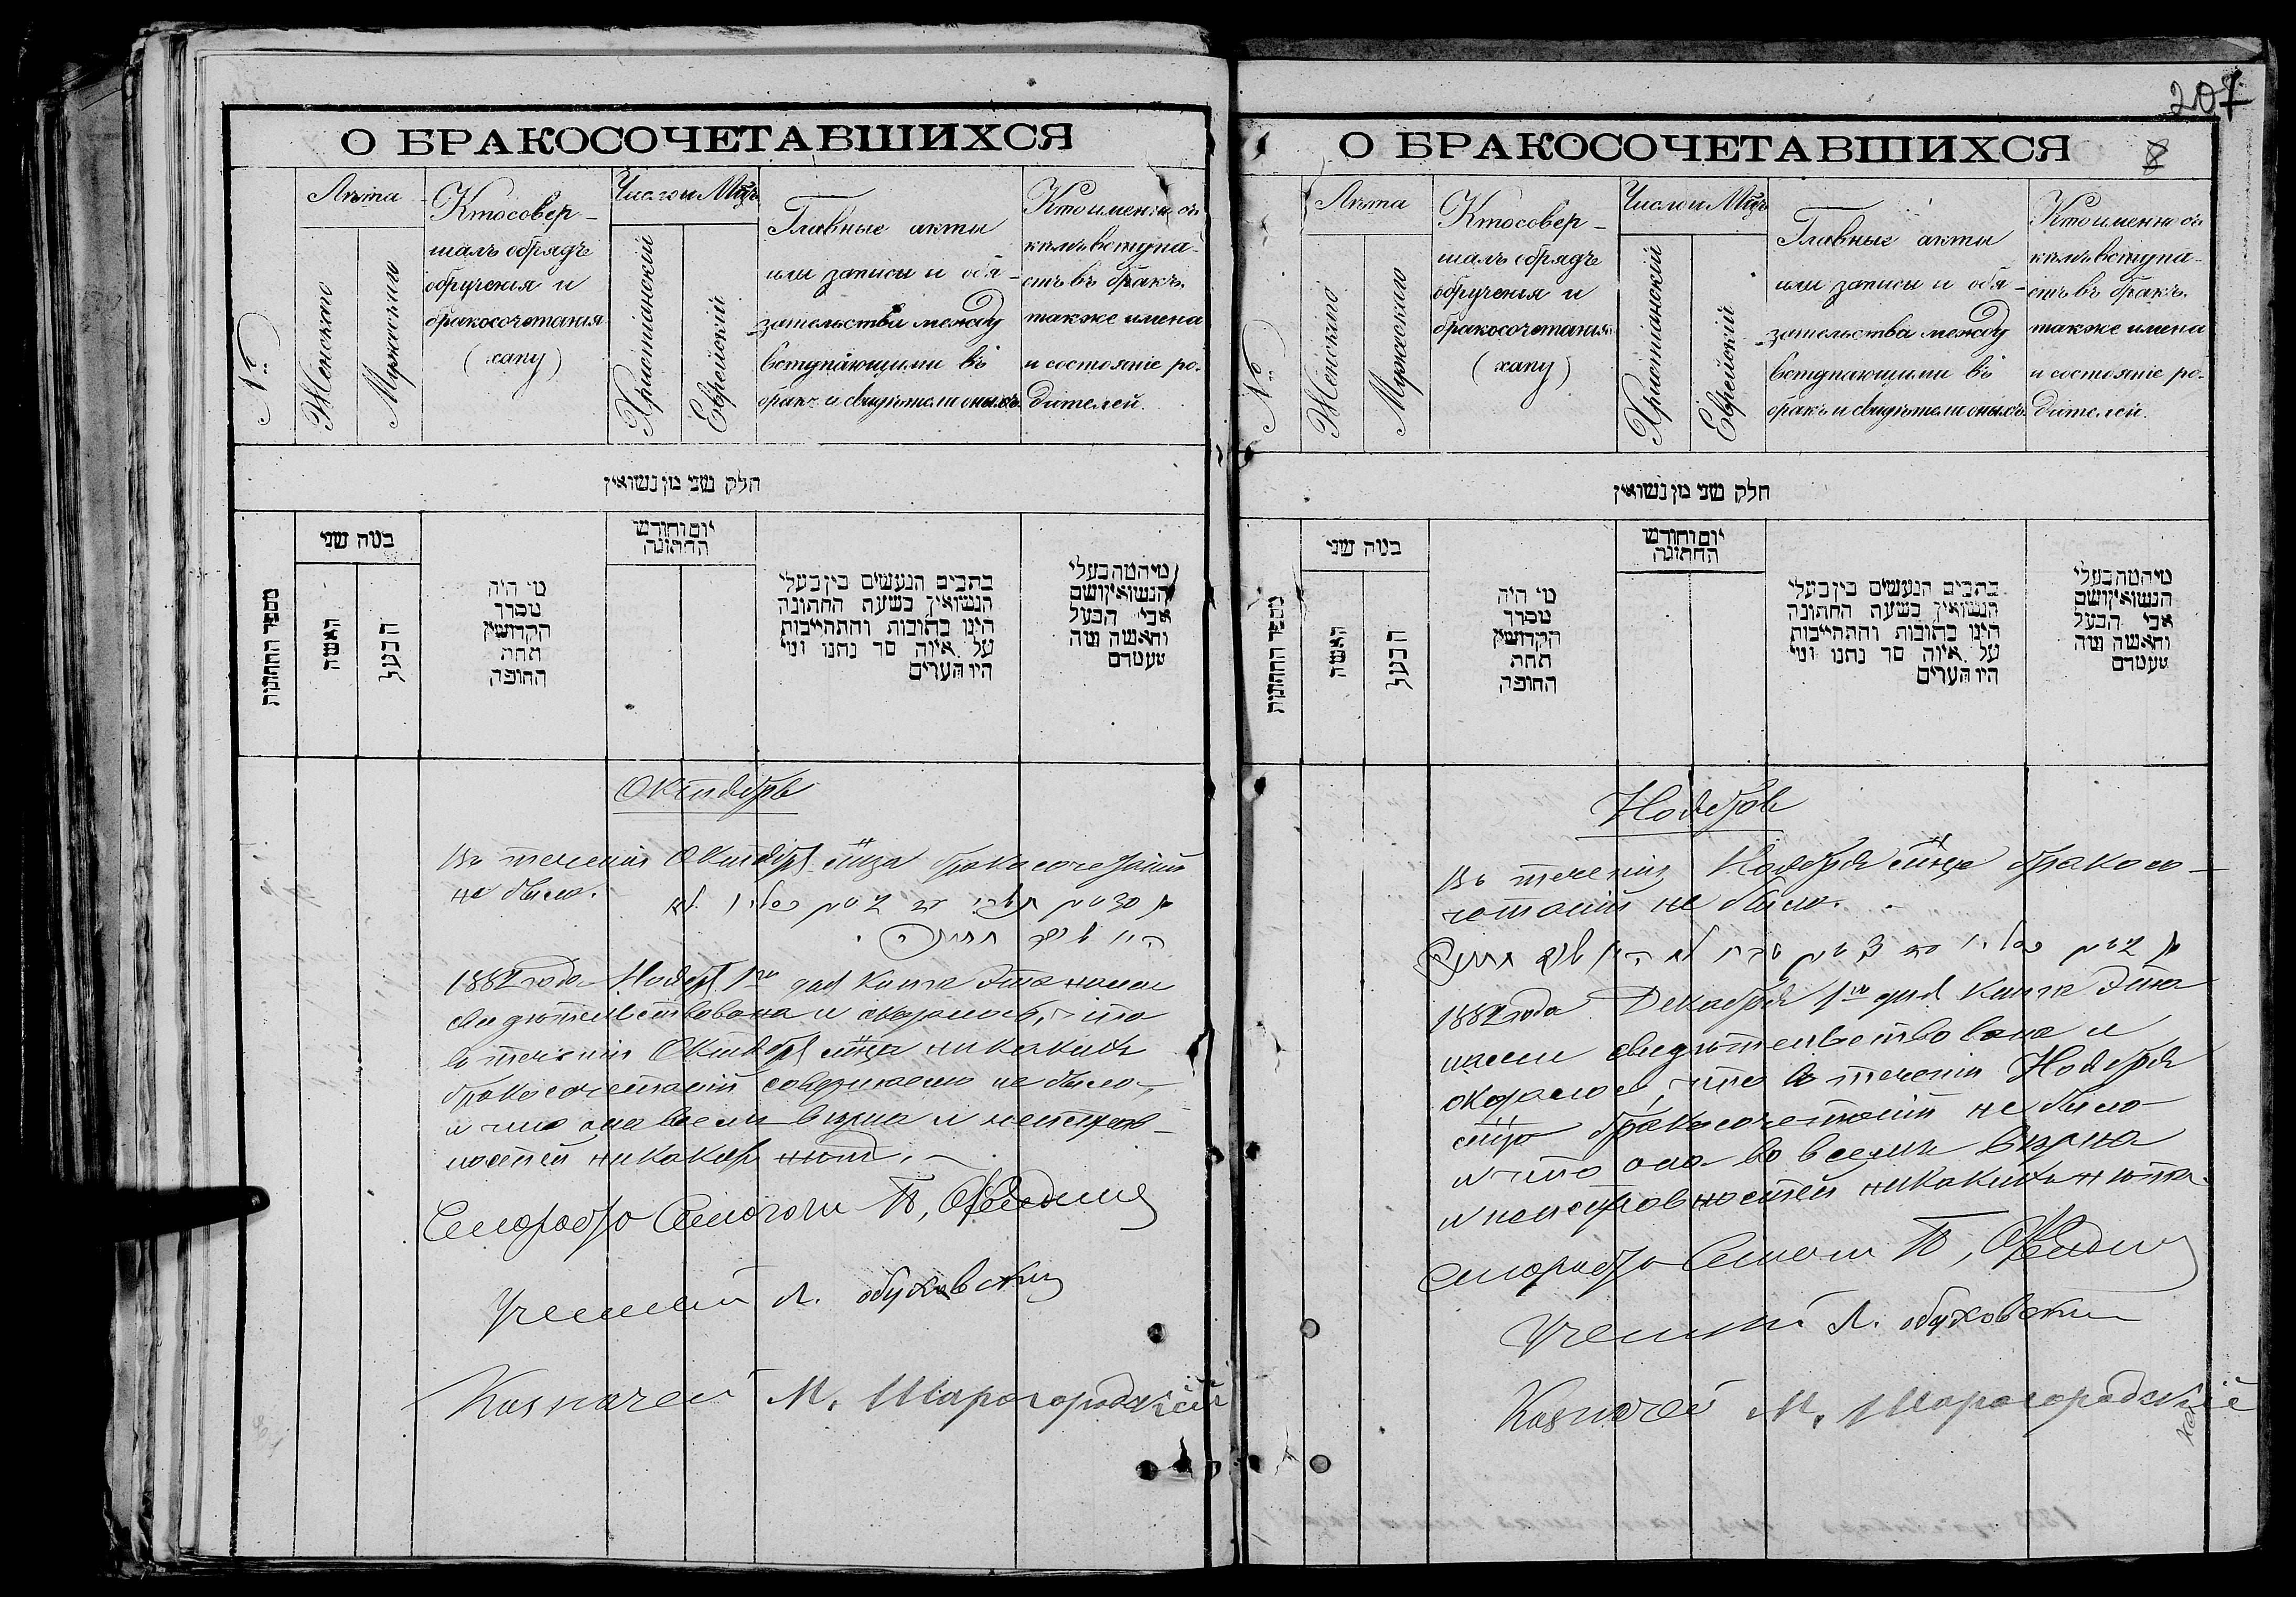 О БРАКОСОЧЕТАВШИХСЯ
№
Лѣта
Женскаго
Мужескаго
Кто совер-
шалъ обрядъ
обрученія и
бракосочетанія
(хапу)
Число и Мѣцъ
Христіанскій
Еврейскій
Главные акты
или записи и обя-
зательства между
вступающими въ
бракъ и свидѣтели оныхъ.
Кто именно съ
кѣмъ вступа-
етъ въ бракъ.
также имена
и состояніе ро-
дителей.
חלק שני מן נשואין
מספר החתונות
כמה שני
האשה
הבעל
מי היה
מסדר
הקדושין
תחת
החופה
יום וחודש
החתונה
כתבים הנעשים בין בעלי
הנשואין בשעת החתונה
היינו כתובות והתחייבות
על איזה סך נתנו ומי
היו העדים
מי המה בעלי
הנשואין ושם
אבי הבעל
והאשה ומה
מעמדם
Октябрь
Въ теченіи Октября мца бракосочетаній
не было.
1882 года Ноября 1го дня книга эта нами
свидѣтельствована и оказалось, что
въ теченіи Октября мца никакихъ
бракосочетаній совершаемо не было,
и что она во всемъ вѣрна и неисправ-
ностей никакихъ нѣтъ.
Ученый Л. Обуховскій
Казначей М. Шарогородскій
207
О БРАКОСОЧЕТАВШИХСЯ
8
№
Лѣта
Женскаго
Мужескаго
Кто совер-
шалъ обрядъ
обрученія и
бракосочетанія
(хапу)
Число и Мѣцъ
Христіанскій
Еврейскій
Главные акты
или записи и обя-
зательства между
вступающими въ
бракъ и свидѣтели оныхъ.
Кто именно съ
кѣмъ вступа-
етъ въ бракъ.
также имена
и состояніе ро-
дителей.
חלק שני מן נשואין
מספר החתונות
כמה שני
האשה
הבעל
מי היה
מסדר
הקדושין
תחת
החופה
יום וחודש
החתונה
כתבים הנעשים בין בעלי
הנשואין בשעת החתונה
היינו כתובות והתחייבות
על איזה סך נתנו ומי
היו העדים
מי המה בעלי
הנשואין ושם
אבי הבעל
והאשה ומה
מעמדם
Ноябрь
Въ теченіи Ноября мца бракосо-
четаній не было.
1882 года Декабря 1го дня книга эта
нами свидѣтельствована и
оказалось, что въ теченіи Ноября
мца бракосочетаній не было
и что она во всемъ вѣрна
и неисправностей никакихъ нѣтъ.
Ученый Л. Обуховскій
Казначей М. Шарогородскій